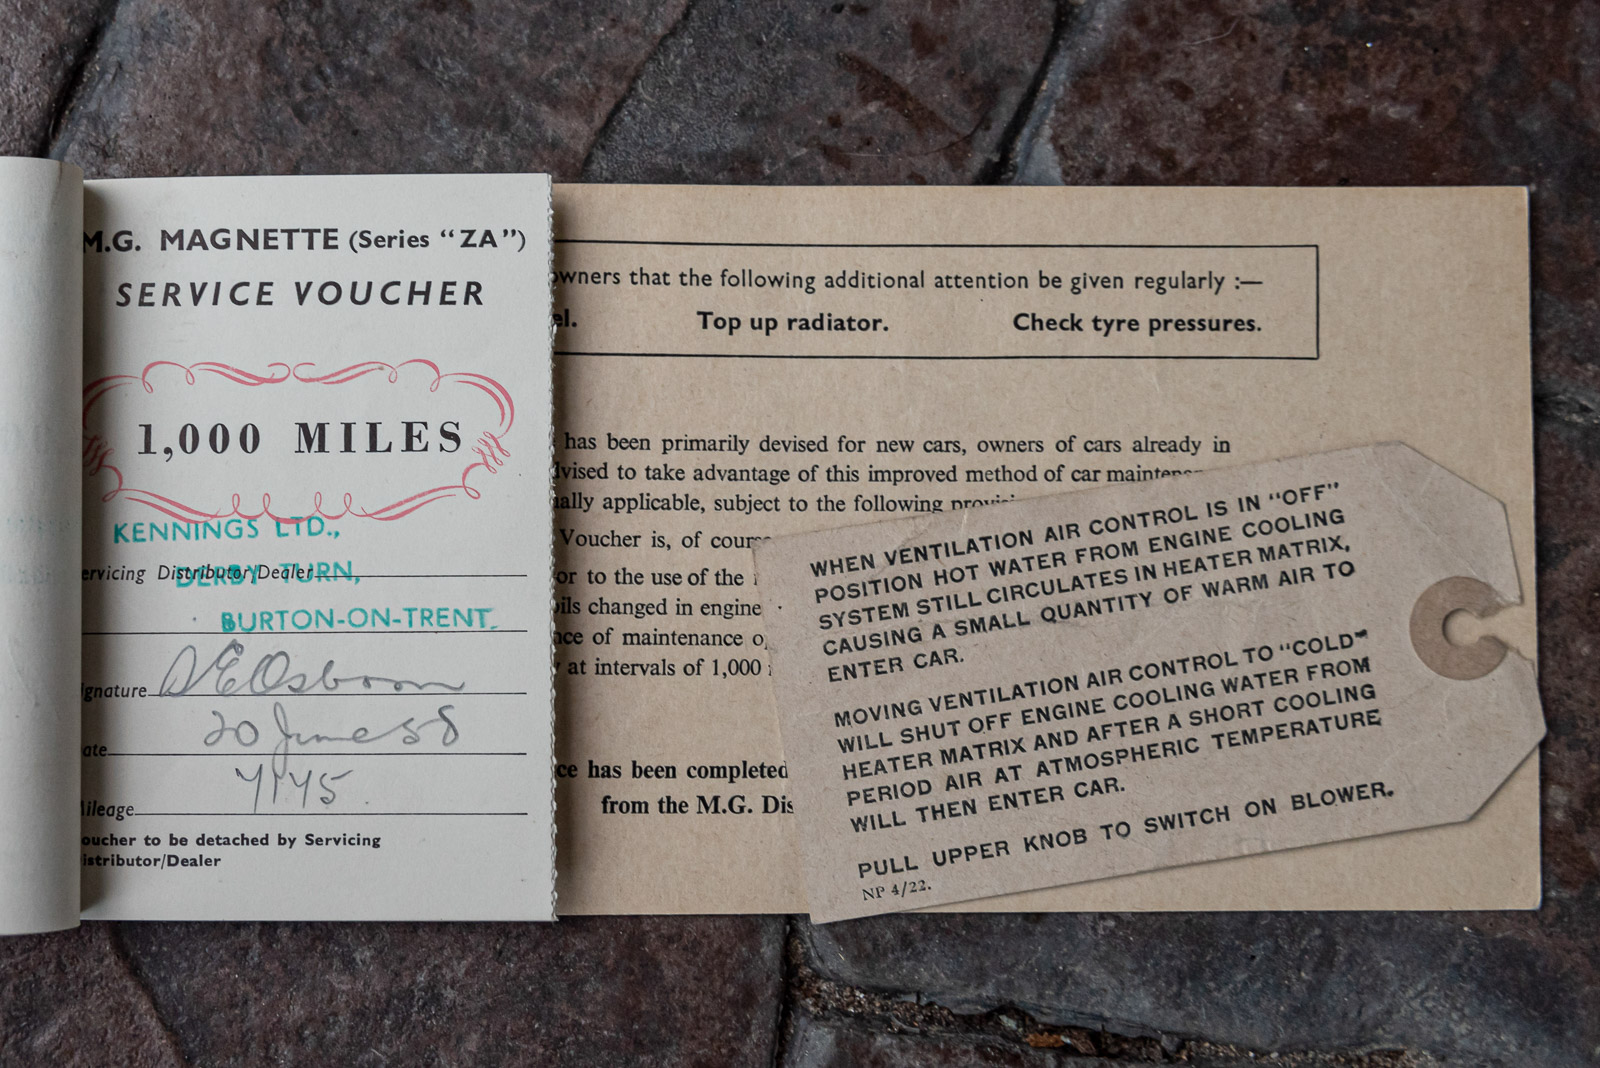 M.G. MAGNETTE (Series “ZA”)
SERVICE VOUCHER
1,000 MILES
KENNINGS LTD.,
ervicing Distributor/Dealer
DERBY TURN,
BURTON-ON-TRENT.
ignature D E Osborn
ate 20 June 58
ileage 7145
oucher to be detached by Servicing
istributor/Dealer
owners that the following additional attention be given regularly :—
el. Top up radiator. Check tyre pressures.
has been primarily devised for new cars, owners of cars already in
vised to take advantage of this improved method of car maintenan
ally applicable, subject to the following provisi
Voucher is, of course
or to the use of the
ils changed in engine
ce of maintenance o
at intervals of 1,000
ce has been completed
from the M.G. Dis
WHEN VENTILATION AIR CONTROL IS IN “OFF”
POSITION HOT WATER FROM ENGINE COOLING
SYSTEM STILL CIRCULATES IN HEATER MATRIX,
CAUSING A SMALL QUANTITY OF WARM AIR TO
ENTER CAR.
MOVING VENTILATION AIR CONTROL TO “COLD”
WILL SHUT OFF ENGINE COOLING WATER FROM
HEATER MATRIX AND AFTER A SHORT COOLING
PERIOD AIR AT ATMOSPHERIC TEMPERATURE
WILL THEN ENTER CAR.
PULL UPPER KNOB TO SWITCH ON BLOWER.
NP 4/22.